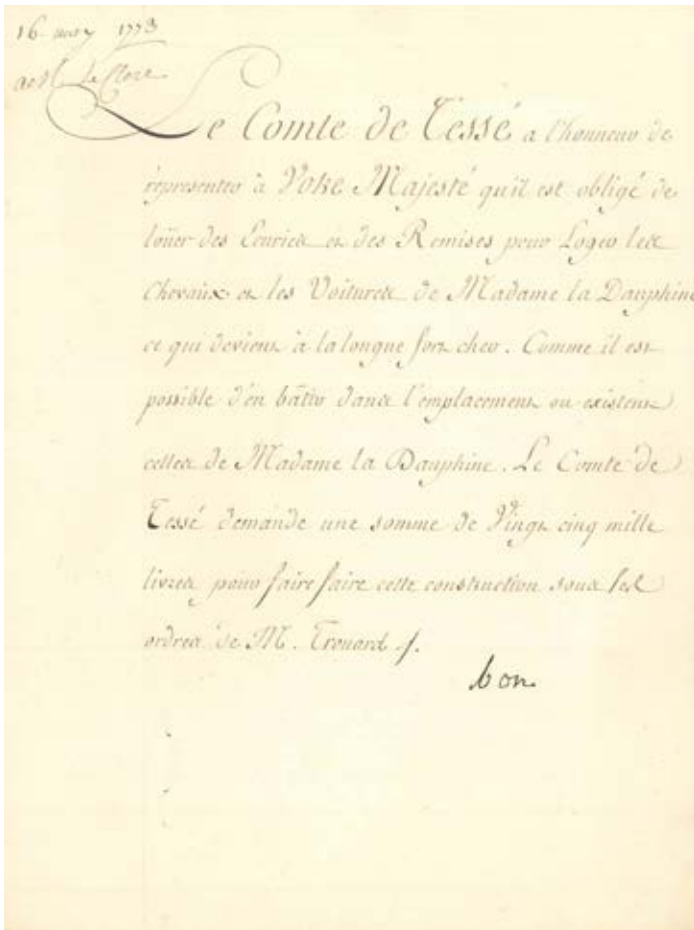 16 mars 1773
a M. Le Clerc
Le Comte de Tessé a l'honneur de
representer à Votre Majesté qu'il est obligé de
loüer des Ecuries et des Remises pour Loger les
Chevaux et les Voitures de Madame la Dauphine
ce qui devient à la longue fort cher. Comme il est
possible d'en bâtir dans l'emplacement ou existent
celles de Madame la Dauphine. Le Comte de
Tessé demande une somme de Vingt cinq mille
livres pour faire faire cette construction sous les
ordres de M. Trouard ./.
bon